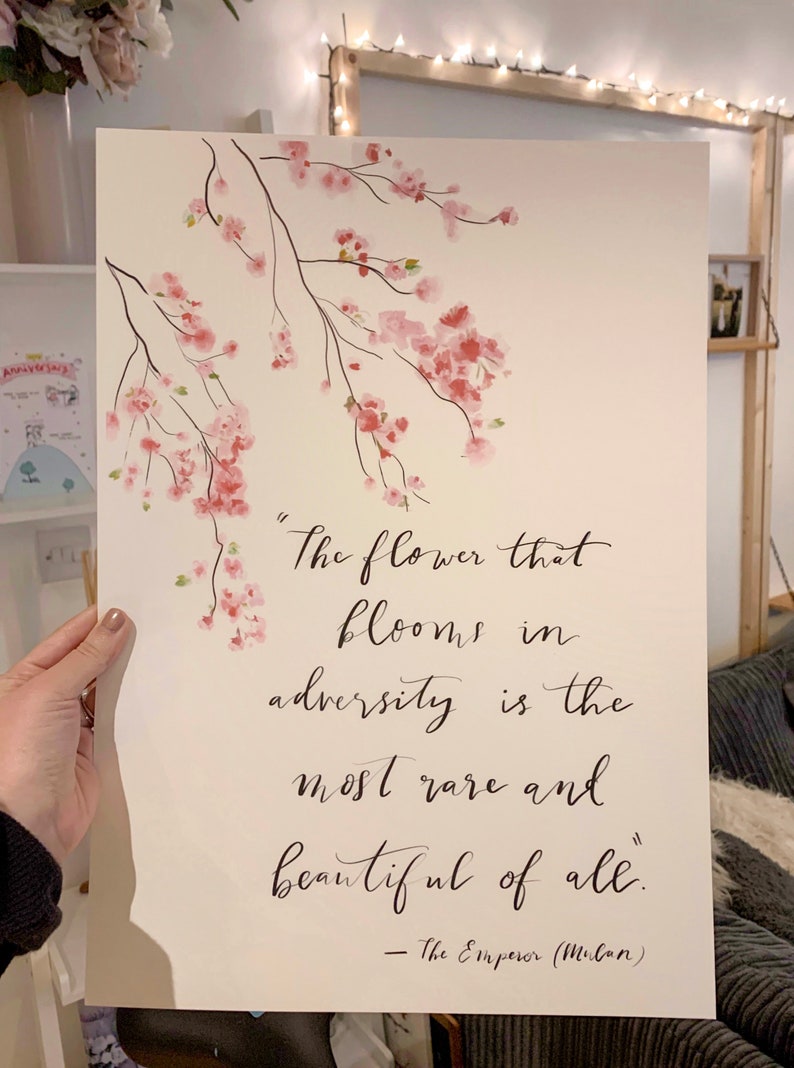 Anniversary
"The flower that
blooms in
adversity is the
most rare and
beautiful of all".
— The Emperor (Mulan)